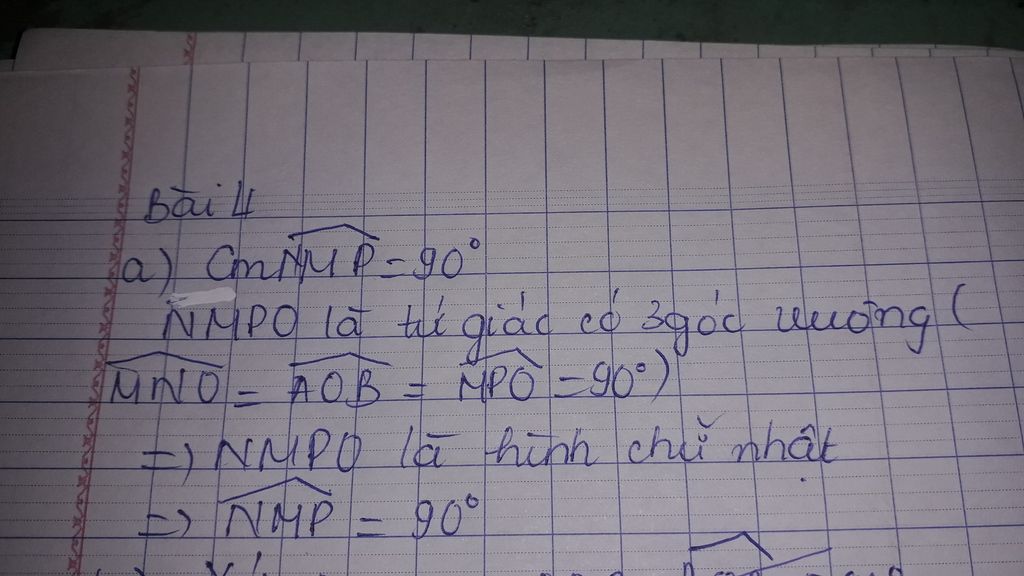 Bài 4
a) Cm NMP = 90°
NMPO là tứ giác có 3 góc vuông (
MNO = AOB = MPO = 90°)
=) NMPO là hình chữ nhật
=) NMP = 90°